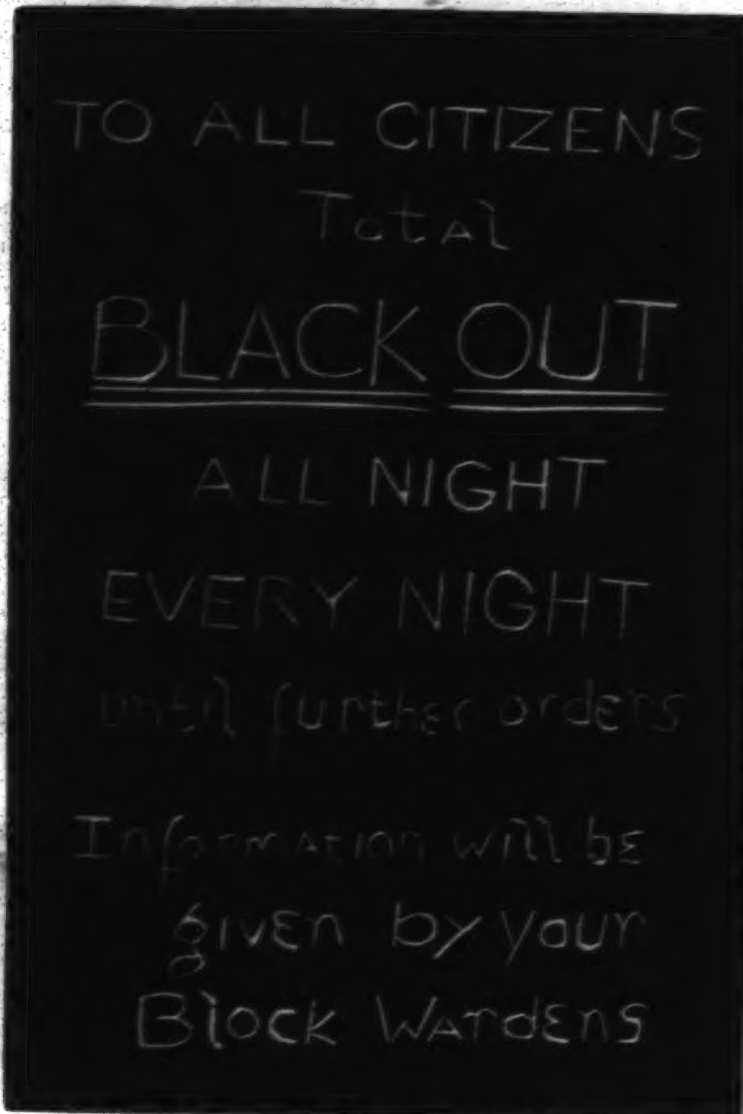 TO ALL CITIZENS
Total
BLACK OUT
ALL NIGHT
EVERY NIGHT
until further orders
Information will be
given by your
Block Wardens